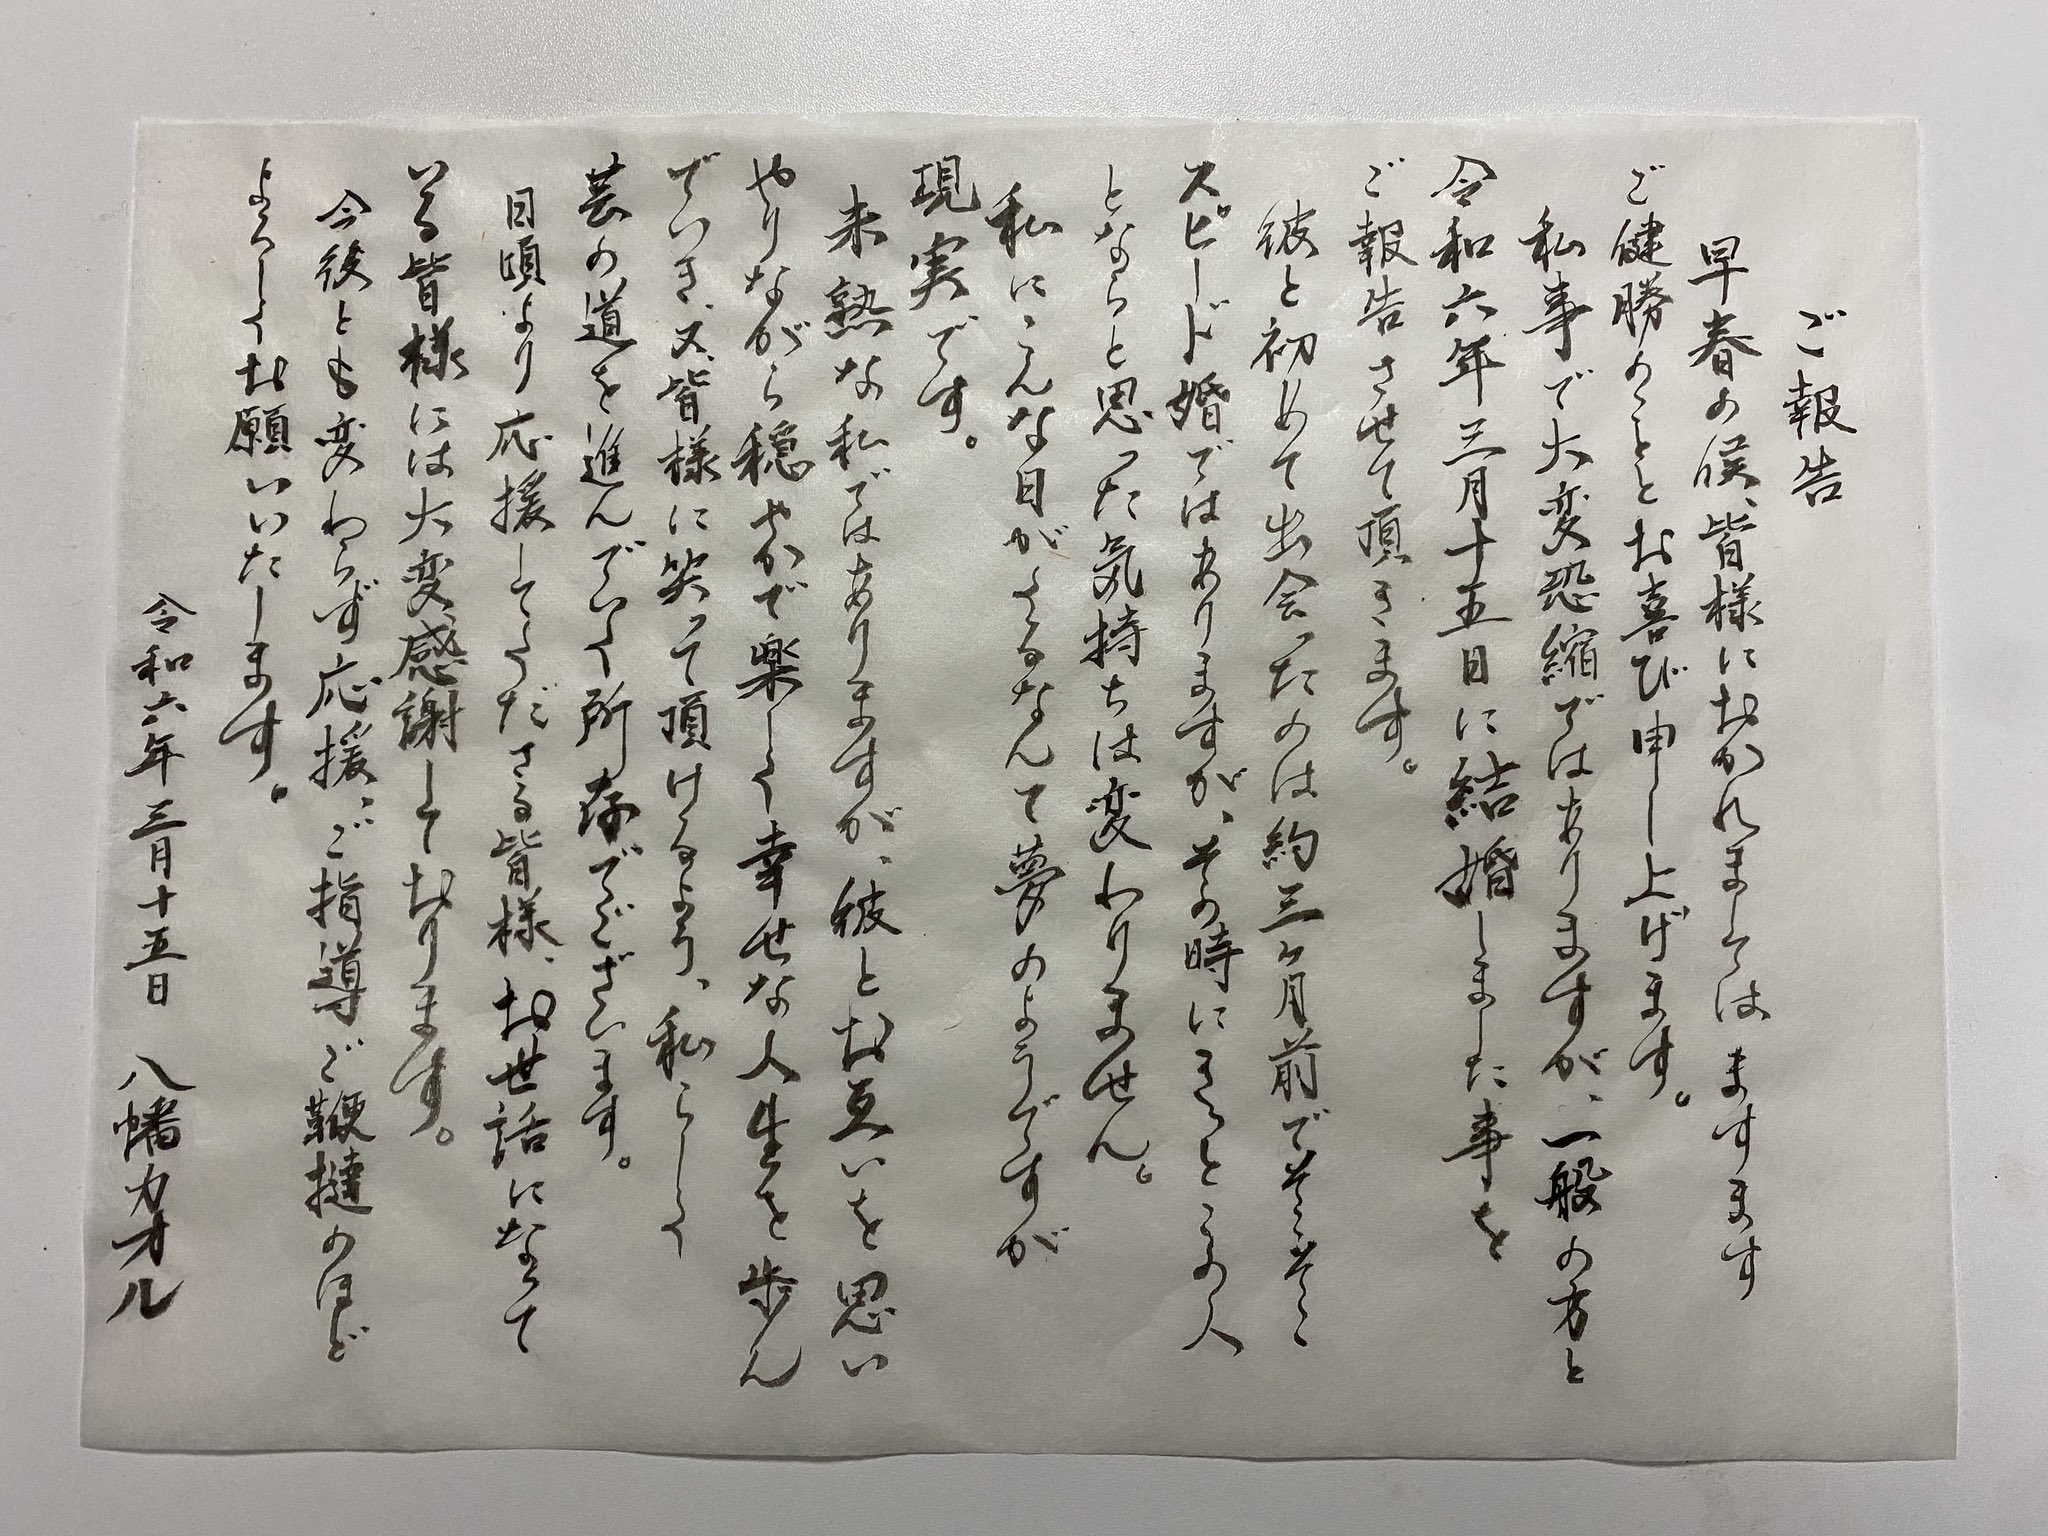 ご報告
早春の候、皆様におかれましてはますます
ご健勝のこととお喜び申し上げます。
私事で大変恐縮ではありますが、一般の方と
令和六年三月十五日に結婚しました事を
ご報告させて頂きます。
彼と初めて出会ったのは約三ヶ月前でそこそこ
スピード婚ではありますが、その時にきっとこの人
とならと思った気持ちは変わりません。
私にこんな日がくるなんて夢のようですが
現実です。
未熟な私ではありますが、彼とお互いを思い
やりながら穏やかで楽しく幸せな人生を歩ん
でいき、又、皆様に笑って頂けるよう、私らしく
芸の道を進んでいく所存でございます。
日頃より応援してくださる皆様、お世話になって
いる皆様には大変感謝しております。
今後とも変わらず応援、ご指導ご鞭撻のほど
よろしくお願いいたします。
令和六年三月十五日 八幡カオル